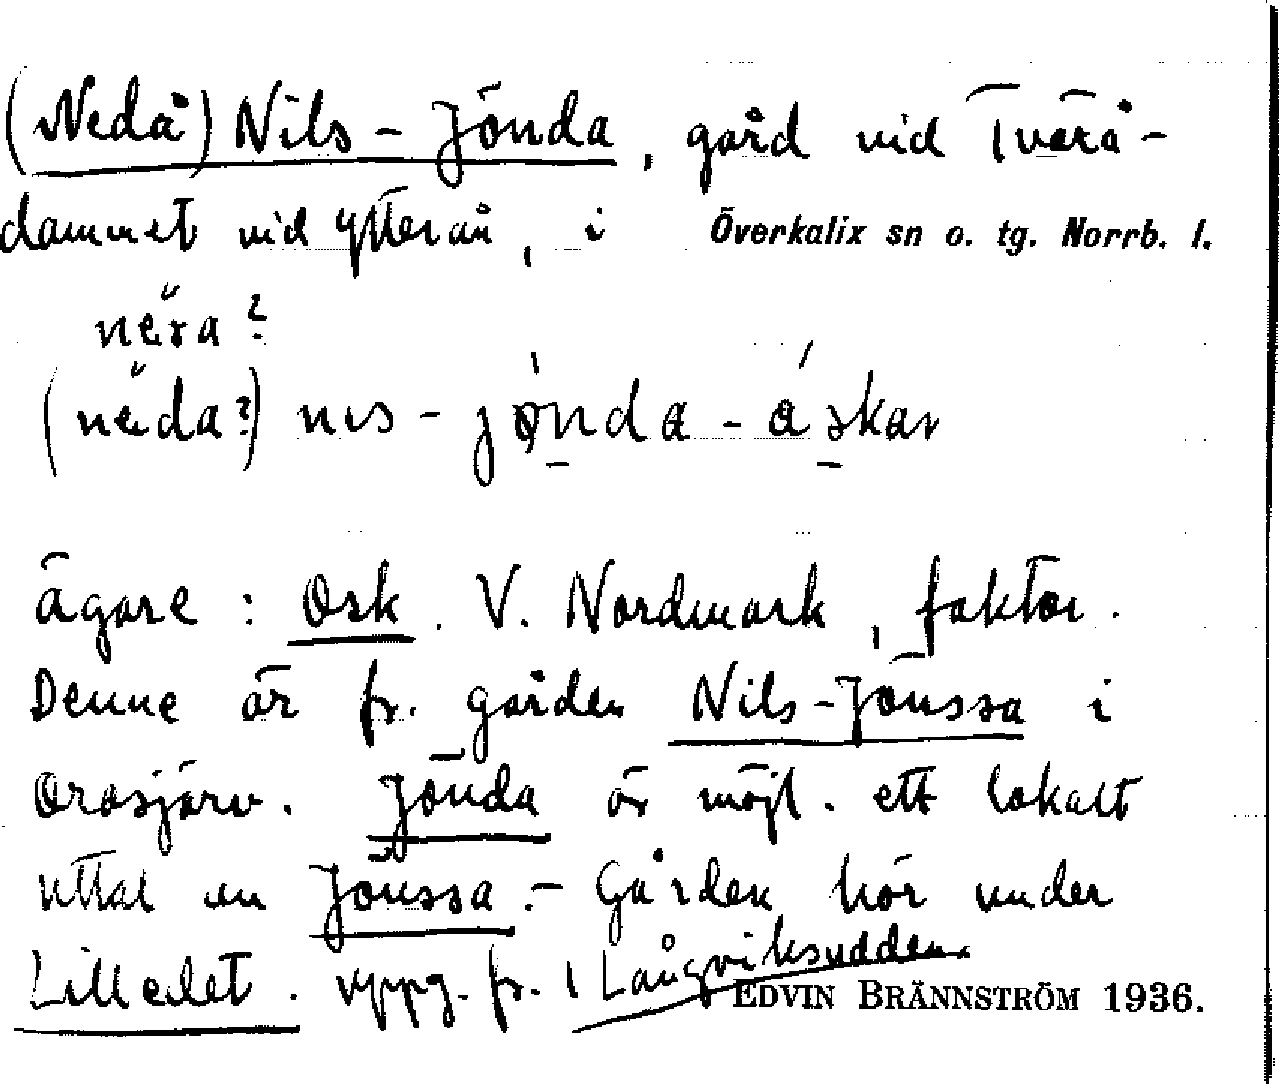 (Nedå) Nils-Jönda, gård vid Tvärå-
dammet vid Ytterån, i Överkalix sn o. tg. Norrb. l.
nära?
(näda?) nıs-jönda-åskav
ägare: Osk. V. Nordmark, faktor.
Denne är fr. gården Nils-Jönssa i
Orasjärv. Jönda är möjl. ett lokalt
uttal av Jönssa.- Gården hör under
Lilledet. uppg. fr. Långviksudden.
EDVIN BRÄNNSTRÖM 1936.